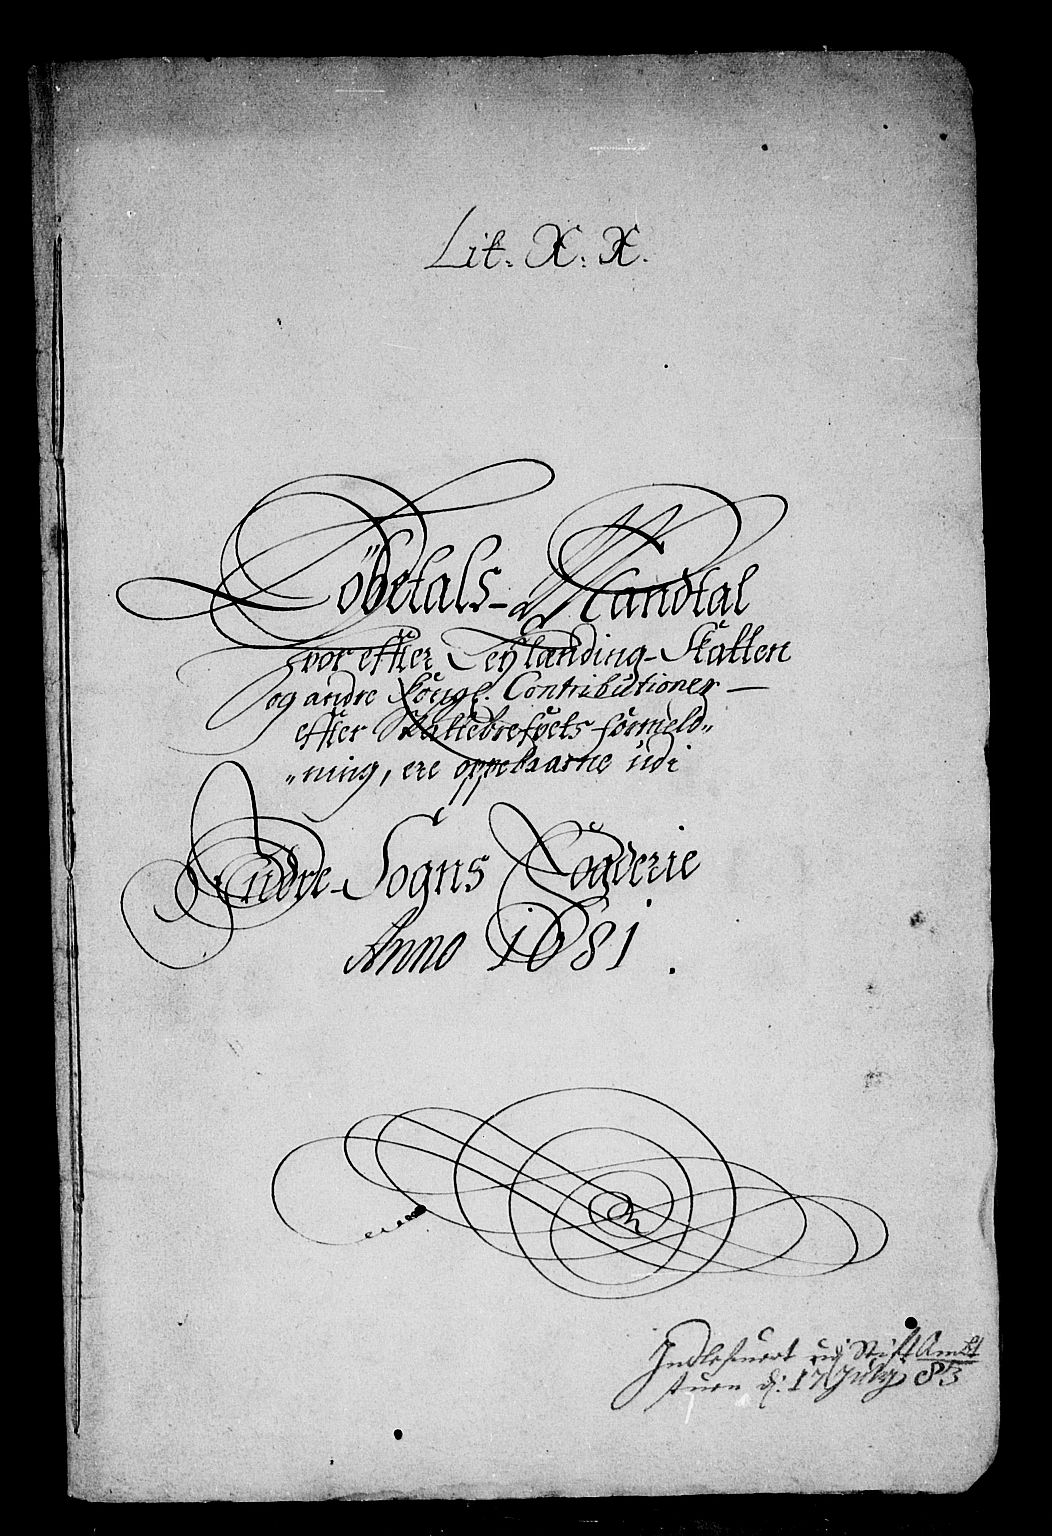 Lit. X. X.
Löbetals-Mandtal
hvor effter Leylænding-Skatten
og andre Kongl. Contributioner
effter Skattebrefvets formeld„
„ning, ere oppebaarne udi
Indre-Sogns Fogderie
Anno 1681.
Indlefuert udj Stift Ambt
stuen d: 17 July 83